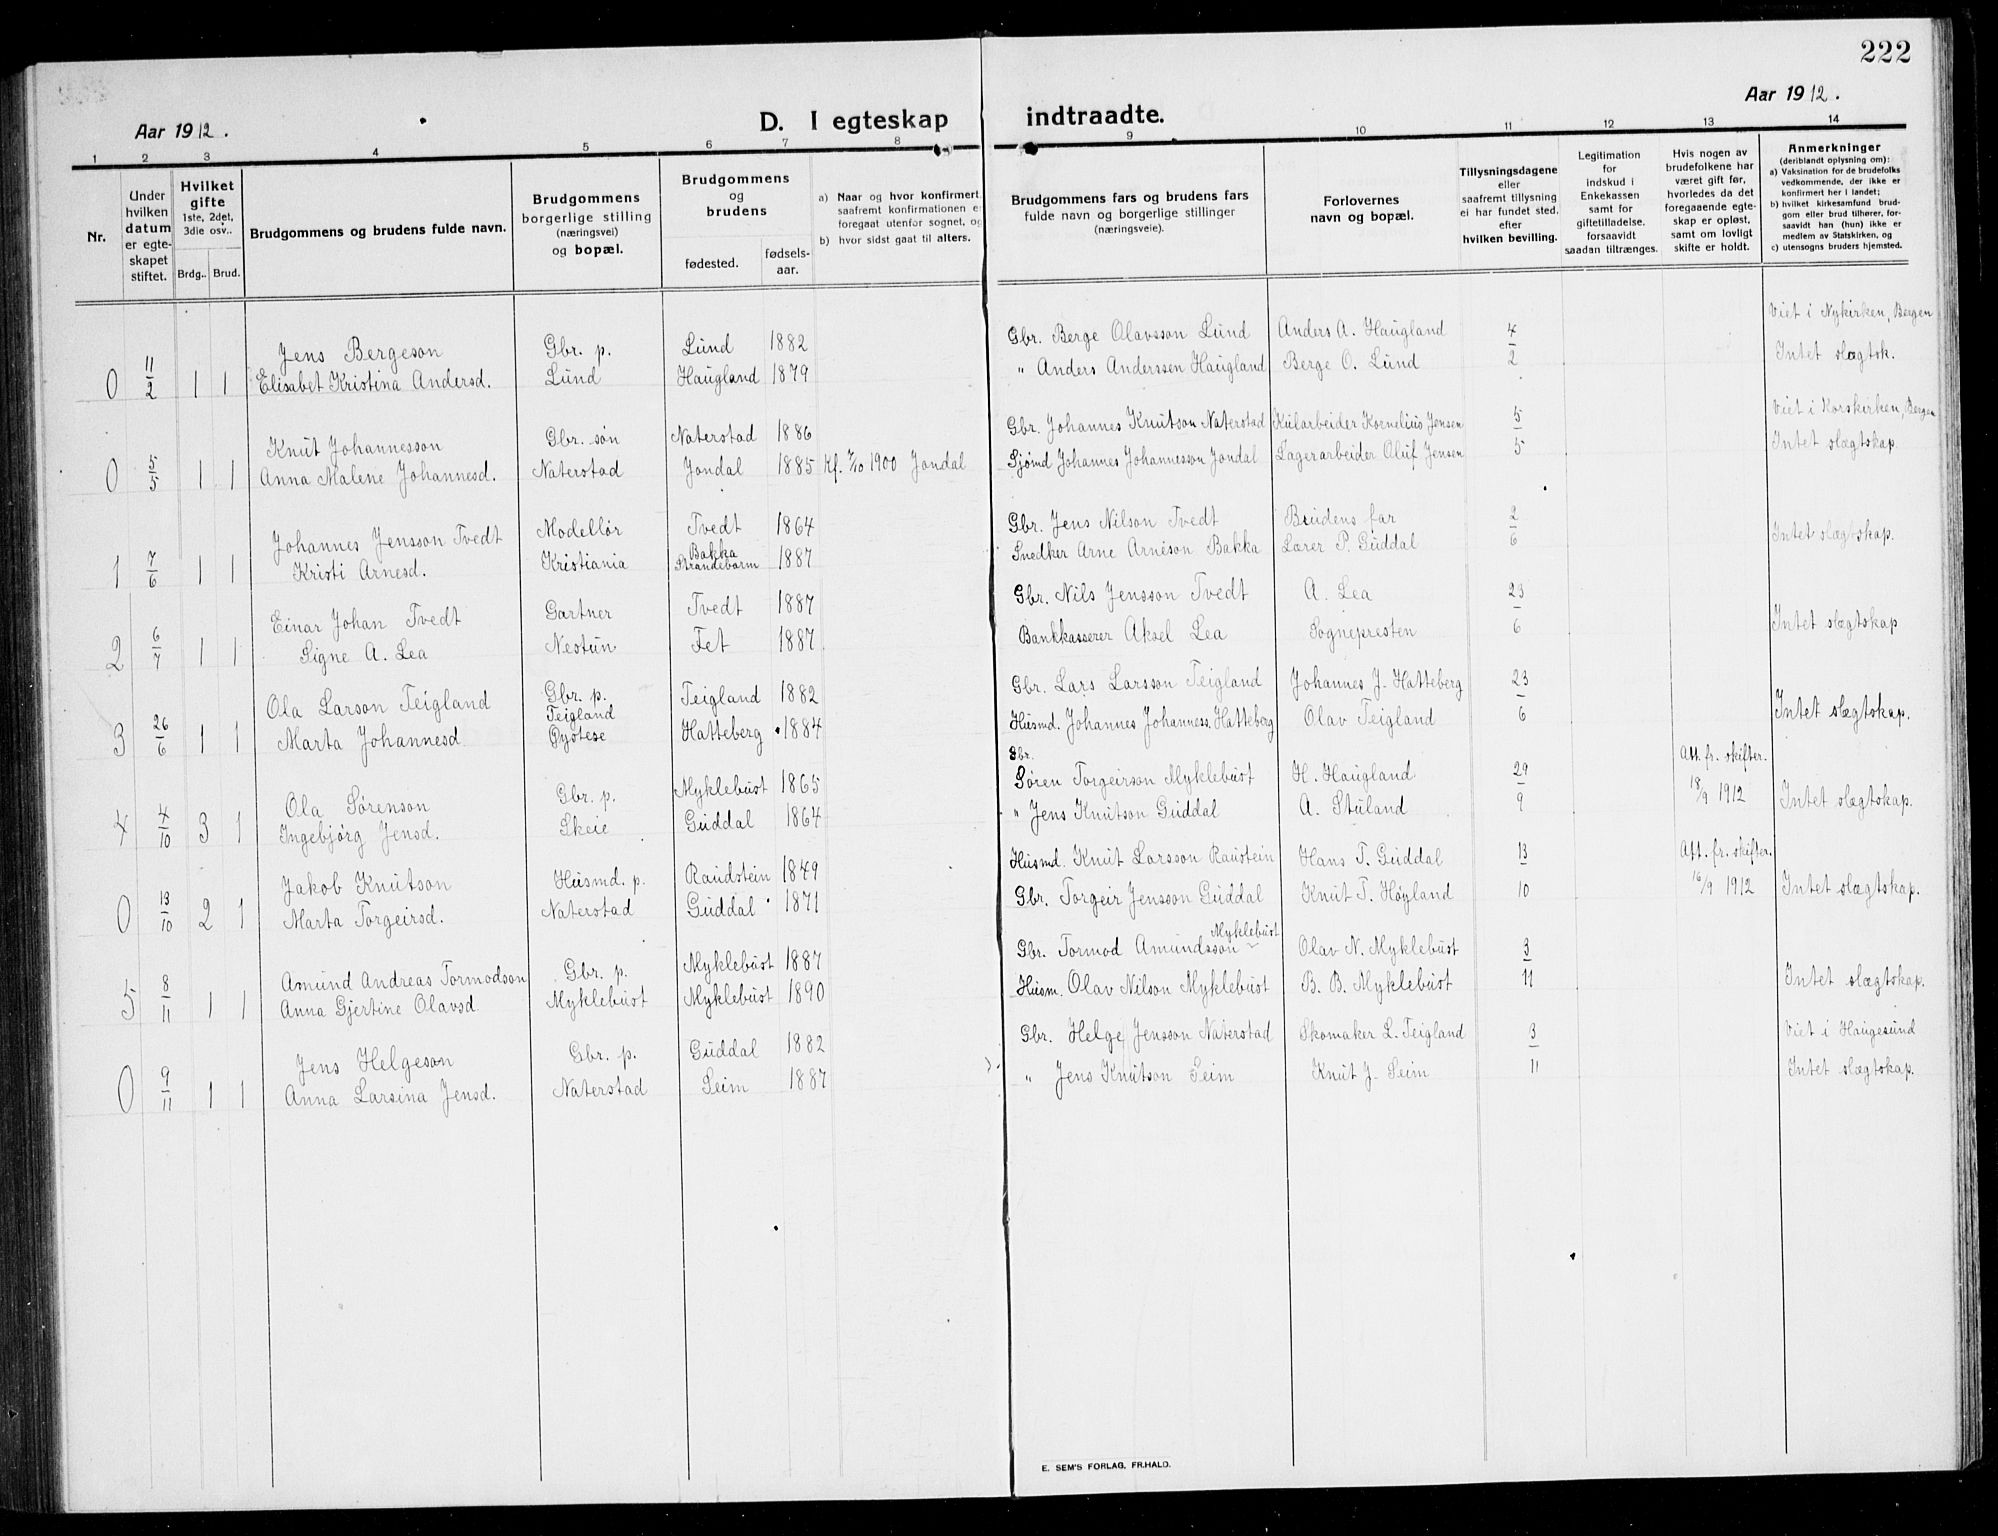 222
Aar 1912.
D. I egteskap indtraadte.
Aar 1912.
1 2 3 4 5 6 7 8 9 10 11 12 13 14
Nr.
Under hvilken datum er egte-skapet stiftet.
Hvilket gifte 1ste, 2det, 3die osv..
Brdg.. Brud.
Brudgommens og brudens fulde navn.
Brudgommens borgerlige stilling (næringsvei) og bopæl.
Brudgommens og brudens
fødested. fødsels-aar.
a) Naar og hvor konfirmert,
saafremt konfirmationen e
foregaat utenfor sognet, og
b) hvor sidst gaat til alters.
Brudgommens fars og brudens fars
fulde navn og borgerlige stillinger
(næringsveie).
Forlovernes
navn og bopæl.
Tillysningsdagene
eller
saafremt tillysning
ei har fundet sted.
efter
hvilken bevilling.
Legitimation
for
indskud i
Enkekassen
samt for
giftetilladelse.
forsaavidt
saadan tiltrænges.
Hvis nogen av
brudefolkene har
været gift før,
hvorledes da det
foregaaende egte-
skap er opløst,
samt om lovligt
skifte er holdt.
Anmerkninger
(deriblandt oplysning om):
a) Vaksination for de brudefolks
vedkommende, der ikke er
konfirmert her i landet;
b) hvilket kirkesamfund brud-
gom eller brud tilhører, for-
saavidt han (hun) ikke er
medlem av Statskirken, og
c) utensogns bruders hjemsted.
Jens Bergeson Gbr. p. Lund 1882 Gbr. Berge Olavsson Lund Anders A. Haugland 4/2 Viet i Nykirken, Bergen
0 11/2 1 1 Elisabet Kristina Andersd. Lund Haugland 1879 " Anders Anderssen Haugland Berge O. Lund Intet slægtsk.
Knut Johannesson Gbr. søn Naterstad 1886 Gbr. Johannes Knutson Naterstad Kularbeider Kornelius Jensen 5/5 Viet i Korskirken, Bergen
0 5/5 1 1 Anna Malene Johannesd. Naterstad Jondal 1885 Kf. 7/10 1900 Jondal Sjømd Johannes Johannesson Jondal Lagerarbeider Oluf Jensen Intet slægtskap.
Johannes Jensson Tvedt Modellør Tvedt 1864 Gbr. Jens Nilson Tvedt Brudens far 2/6 Intet slægtskap.
1 7/6 1 1 Kristi Arnesd. Kristiania Bakka Strandebarm 1887 Snedker Arne Arneson Bakka Lærer P. Guddal
Einar Johan Tvedt Gartner Tvedt 1887 Gbr. Nils Jensson Tvedt A. Lea 23/6 Intet slægtskap
2 6/7 1 1 Signe A. Lea Nestun Fet 1887 Bankkasserer Aksel Lea Sognepresten
Ola Larson Teigland Gbr. p. Teigland Teigland 1882 Gbr. Lars Larsson Teigland Johannes J. Hatteberg 23/6 Intet slægtskap.
3 26/6 1 1 Marta Johannesd Øystese Hatteberg 1884 Husmd. Johannes Johanness. Hatteberg Olav Teigland
Ola Sørenson Gbr. p. Myklebust 1865 Gbr. Søren Torgeirson Myklebust H. Haugland 29/9 Att. fr. skifter.
4 4/10 3 1 Ingebjørg Jensd. Skeie Guddal 1864 " Jens Knutson Guddal A. Stuland 18/9 1912 Intet slægtskap.
Jakob Knutson Husmd. p. Raudstein 1849 Husmd. Knut Larsson Raustein Hans T. Guddal 13/10 Att. fr. skifter.
0 13/10 2 1 Marta Torgeirsd. Naterstad Guddal 1871 Gbr. Torgeir Jensson Guddal Knut T. Høyland 16/9 1912 Intet slægtskap.
Amund Andreas Tormodson Gbr. p. Myklebust 1887 Gbr. Tormod Amundsson Myklebust Olav N. Myklebust 3/11
5 8/11 1 1 Anna Gjertine Olavsd. Myklebust Myklebust 1890 Husm. Olav Nilson Myklebust B. B. Myklebust Intet slægtskap.
Jens Helgeson Gbr. p. Guddal 1882 Gbr. Helge Jensson Naterstad Skomaker L. Teigland 3/11 Viet i Haugesund
0 9/11 1 1 Anna Larsina Jensd. Naterstad Seim 1887 " Jens Knutson Seim Knut J. Seim Intet slægtskap.
E. SEM'S FORLAG, FR.HALD.